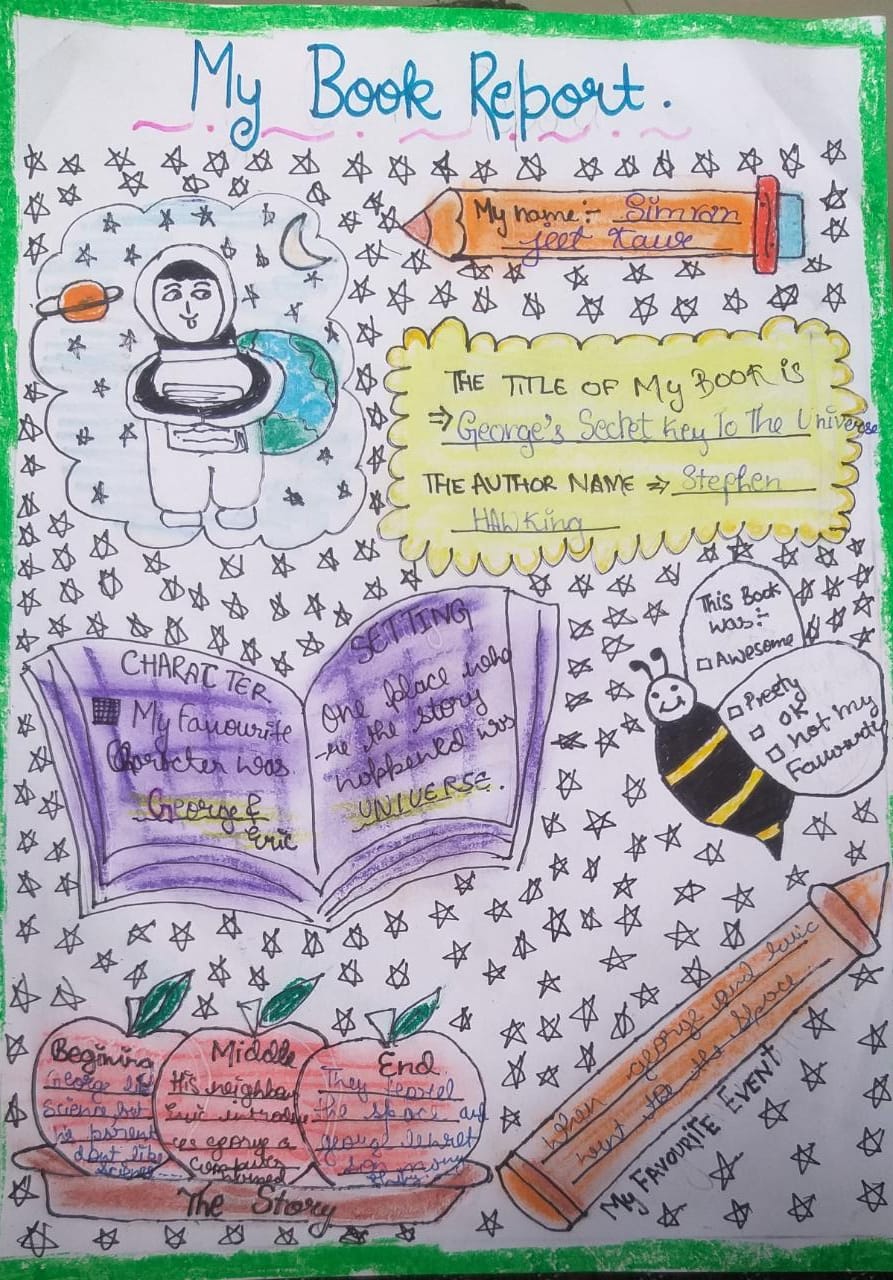 My Book Report.
My name:- Simran
jeet Kaur
THE TITLE OF My BOOK is
⇒ George's Secret Key To The Universe
THE AUTHOR NAME ⇒ Stephen
HAWKing
This Book
was:-
Awesome
Preety
OK
not My
Favourite
CHARACTER
My Favourite
Character was
George &
Eric
SETTING
One place whe
-re the story
happened was
UNIVERSE.
when george and Eric
went the space
My FAVOURITE EVENT
Begining
George like
Science but
he parent
dont like
Science
Middle
His neighbou
Eric introdu
ces george a
Computer
named
End
They
the space and
george
many
The Story